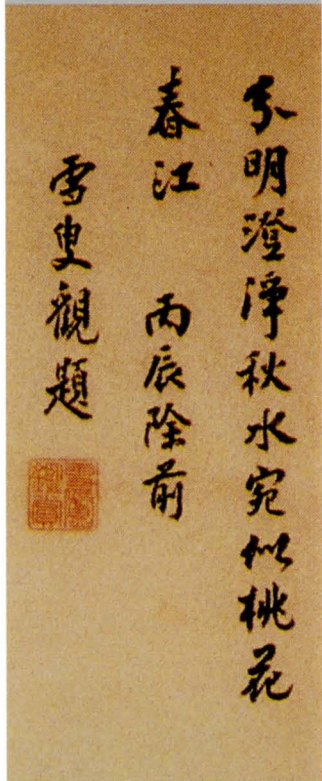 分明澄淨秋水宛似桃花
春江 丙辰除前
雪叟觀題